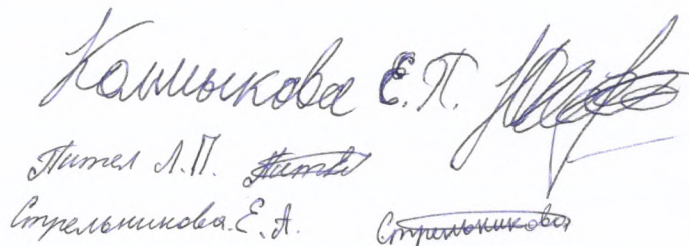 Калмыкова Е.П.
Пител Л.П. Пител
Стрельникова Е.А. Стрельникова